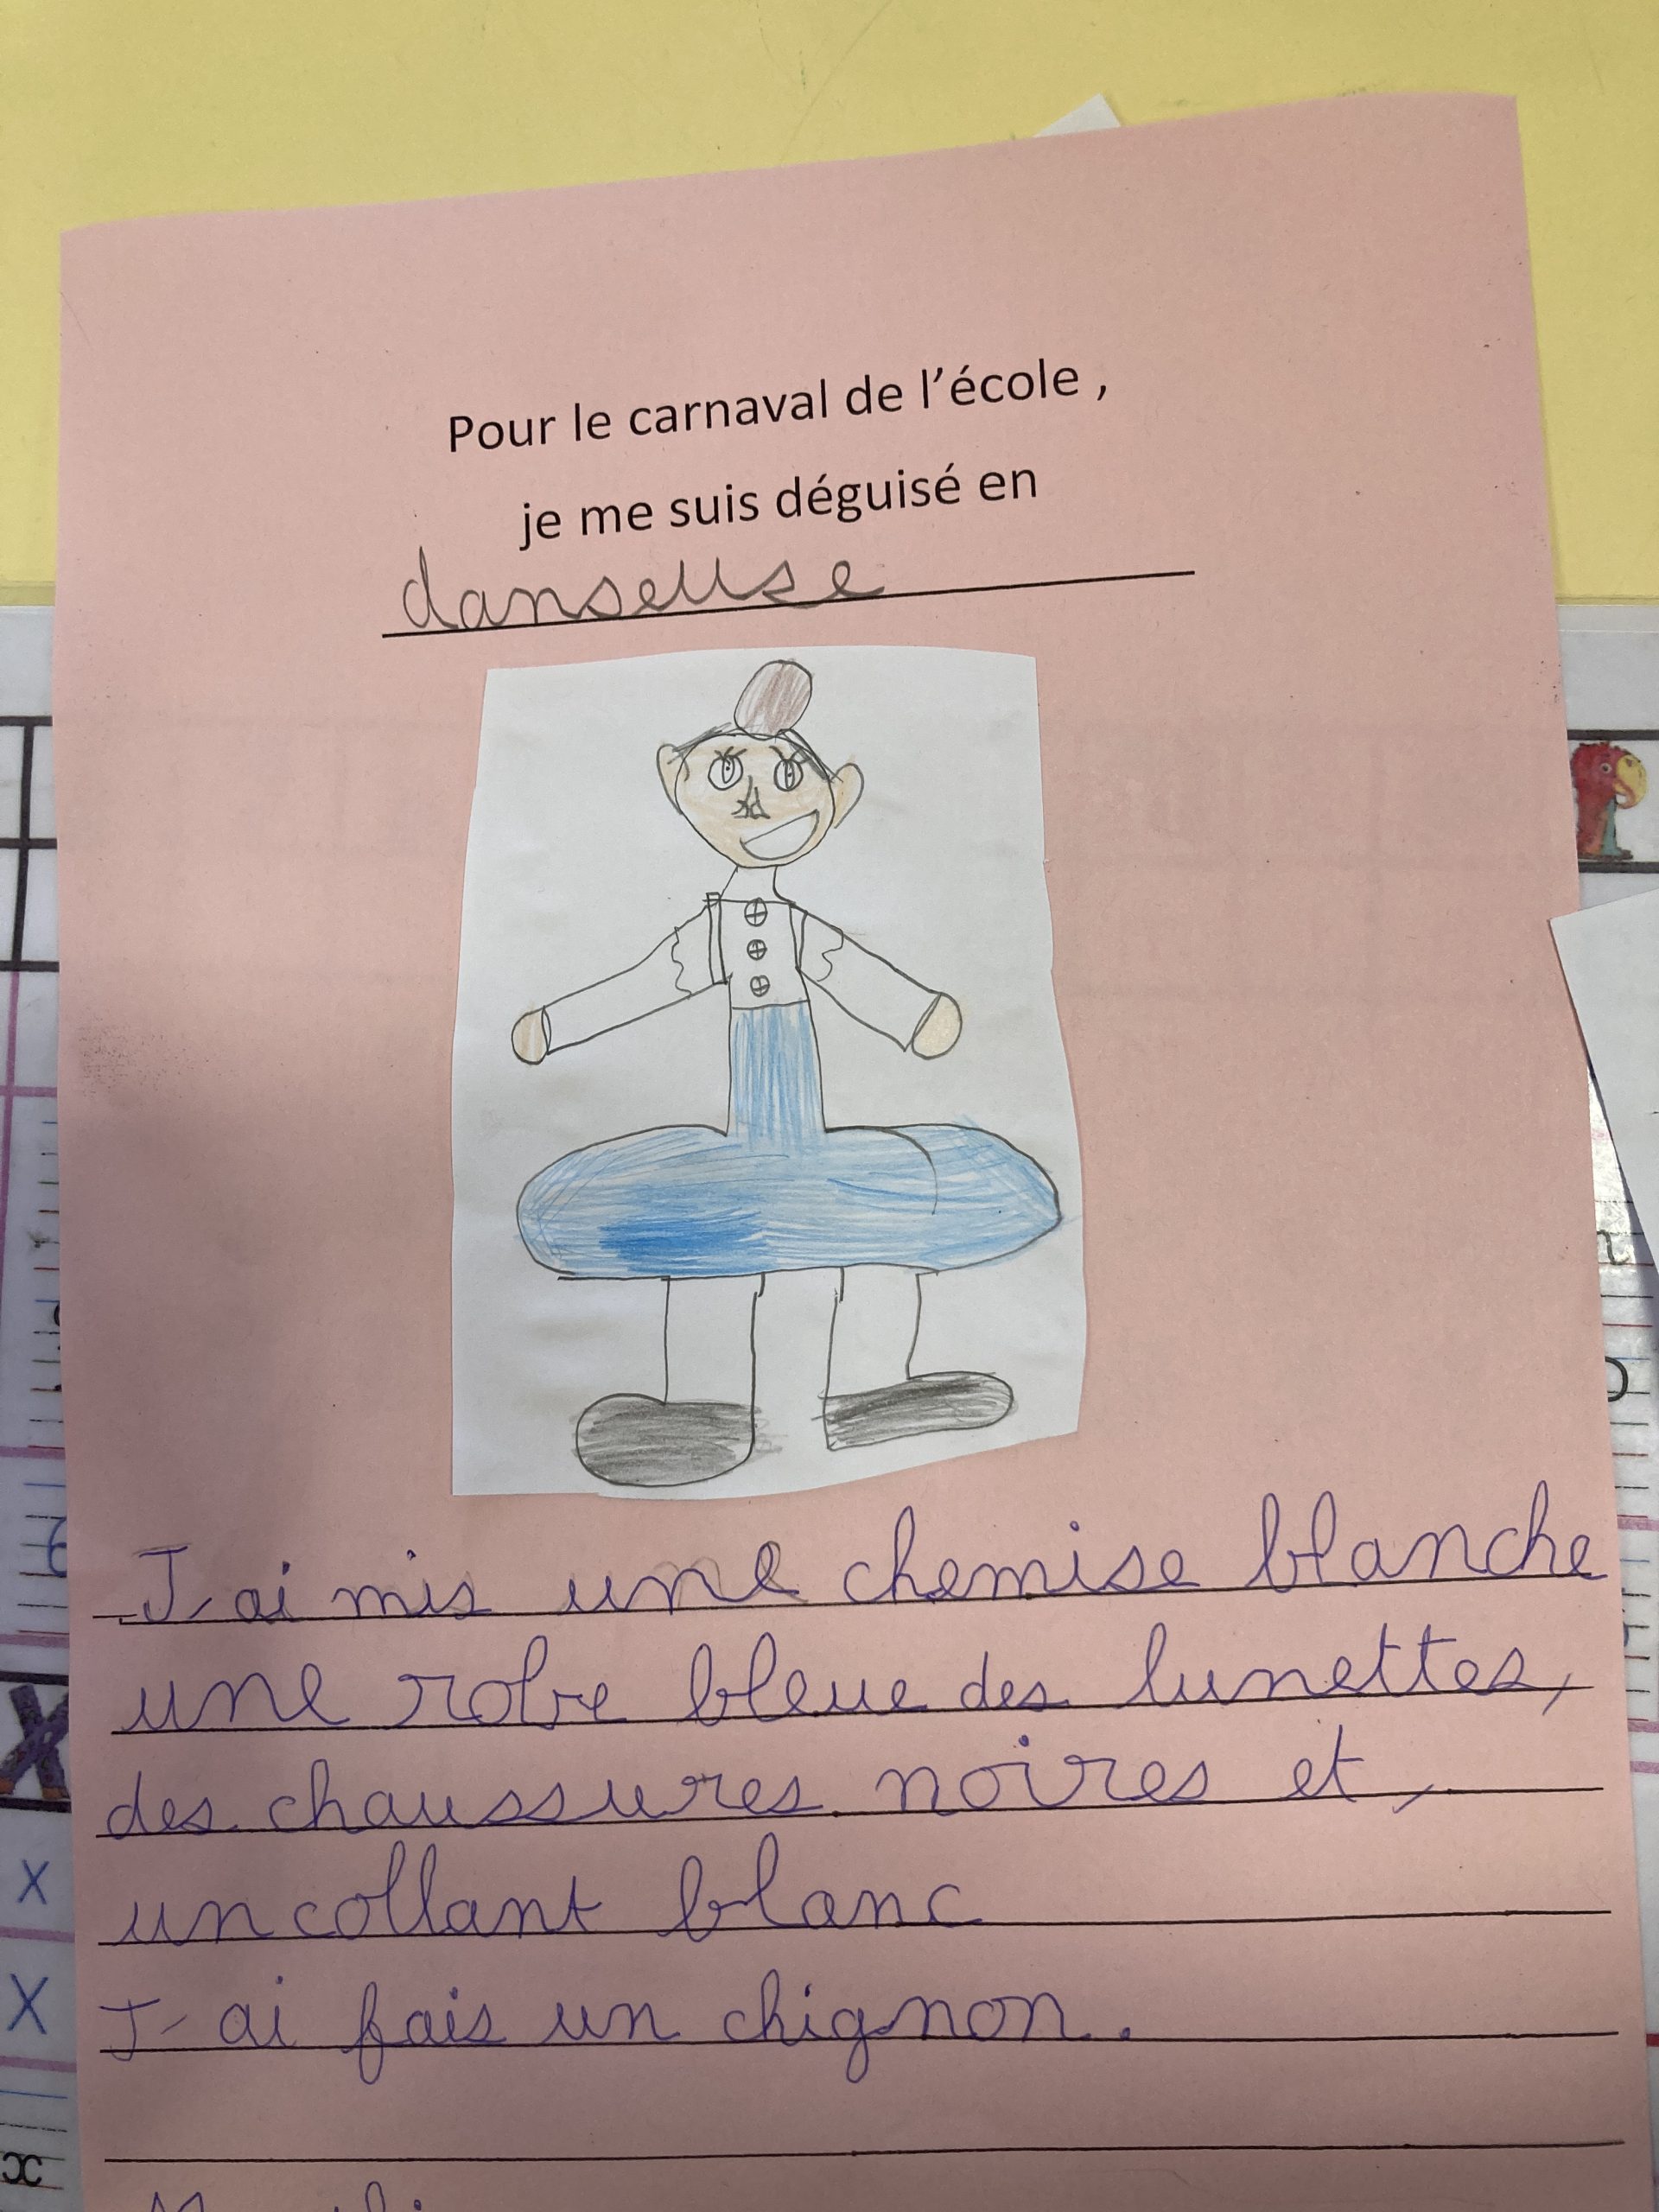 Pour le carnaval de l'école ,
je me suis déguisé en
danseuse
J, ai mis une chemise blanche
une robe bleue des lunettes,
des chaussures noires et ,
un collant blanc
J' ai fais un chignon.
x
x
x